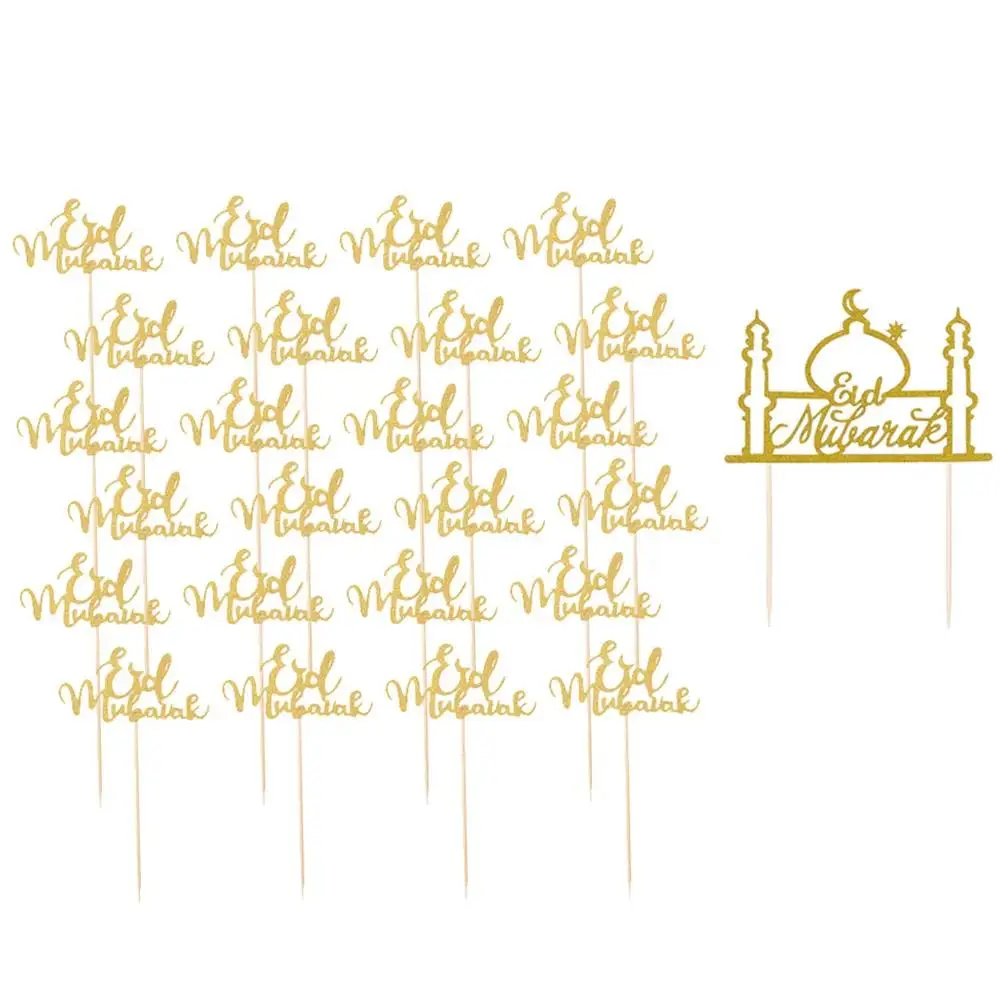 Eid Eid Eid Eid
Mubarak Mubarak Mubarak Mubarak
Eid Eid Eid Eid
Mubarak Mubarak Mubarak Mubarak
Eid Eid Eid Eid
Mubarak Mubarak Mubarak Mubarak
Eid Eid Eid Eid
Mubarak Mubarak Mubarak Mubarak
Eid Eid Eid Eid
Mubarak Mubarak Mubarak Mubarak
Eid Eid Eid Eid
Mubarak Mubarak Mubarak Mubarak
Eid
Mubarak